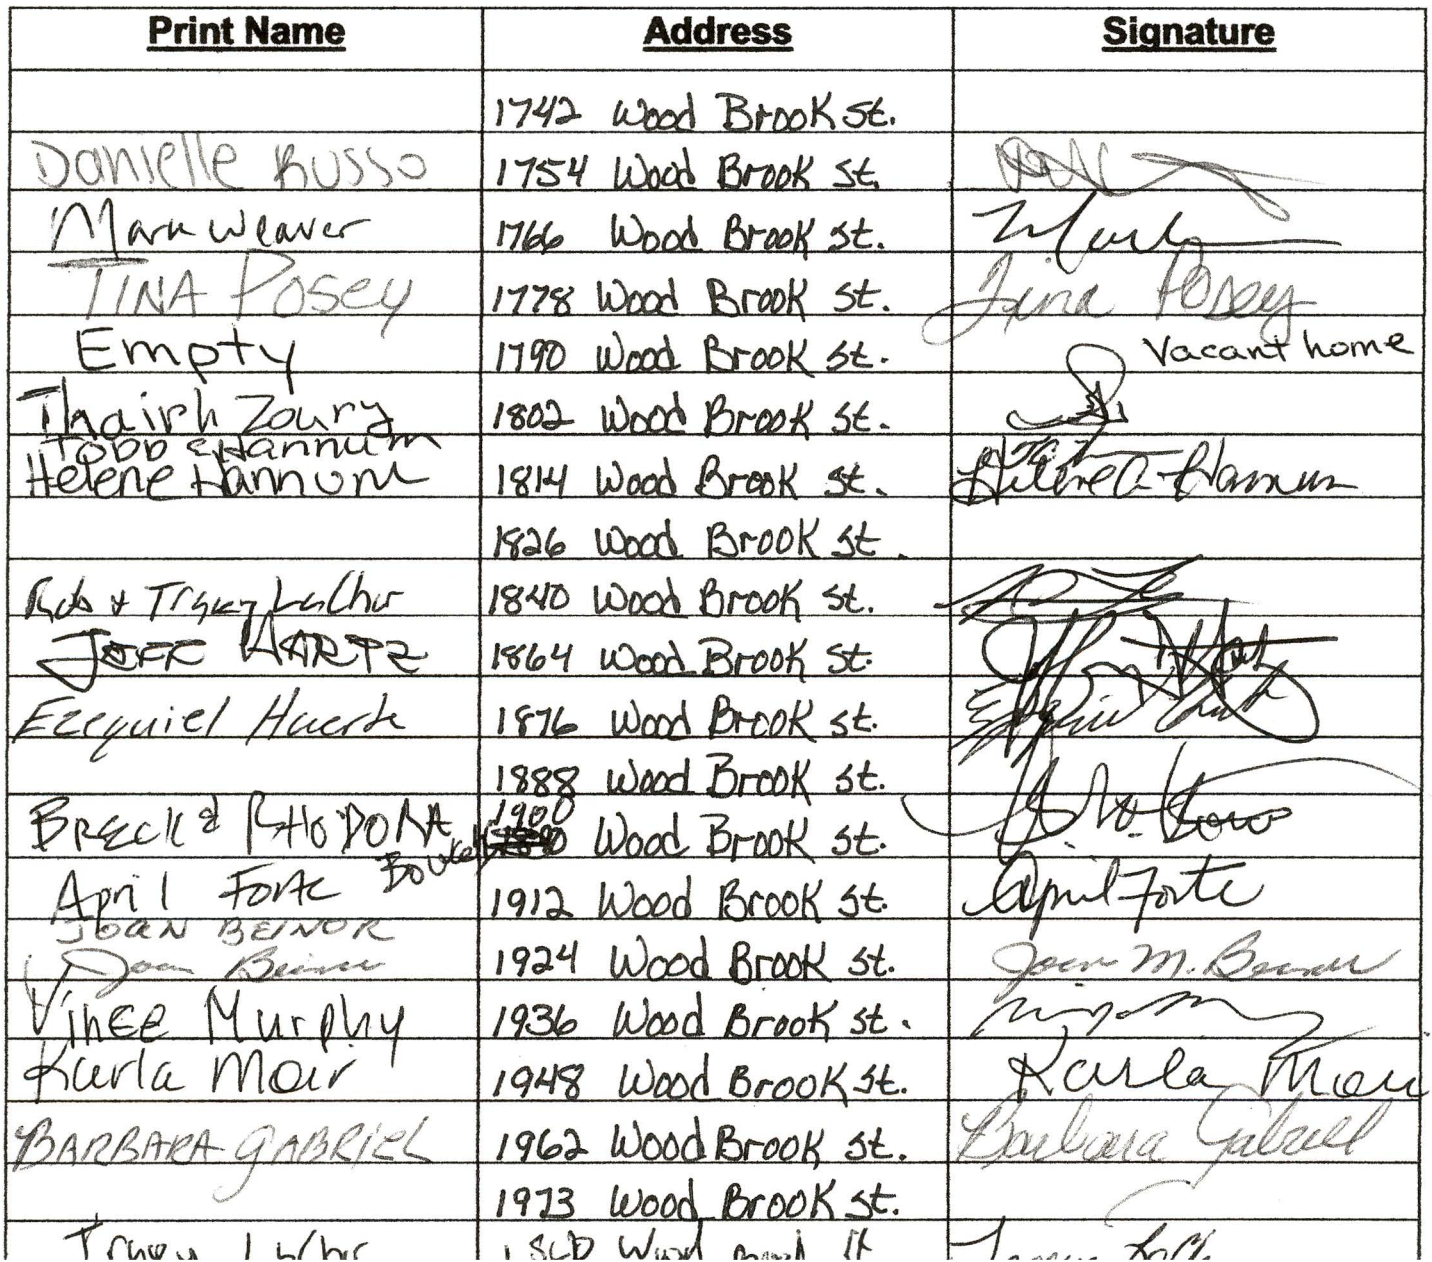 Print Name Address Signature
1742 Wood Brook St.
Danielle Russo 1754 Wood Brook St.
Mark Weaver 1766 Wood Brook St.
TINA Posey 1778 Wood Brook St. Tina Posey
Empty 1790 Wood Brook St. Vacant home
Zoury 1802 Wood Brook St.
Todd Hannum
Helene Hannum 1814 Wood Brook St. Helene A. Hannum
1826 Wood Brook St.
Rob + Tracy 1840 Wood Brook St.
JEFF HARTZ 1864 Wood Brook St.
Ezequiel Huerta 1876 Wood Brook St.
1888 Wood Brook St.
1900
BRECK & RHODORA Wood Brook St.
April Forte 1912 Wood Brook St. April Forte
JOAN BEINOR
Joan Beinor 1924 Wood Brook St. Joan M. Beinor
VincE Murphy 1936 Wood Brook St.
Karla Moir 1948 Wood Brook St. Karla Moir
BARBARA GABRIEL 1962 Wood Brook St. Barbara Gabriel
1973 Wood Brook St.
Tracy